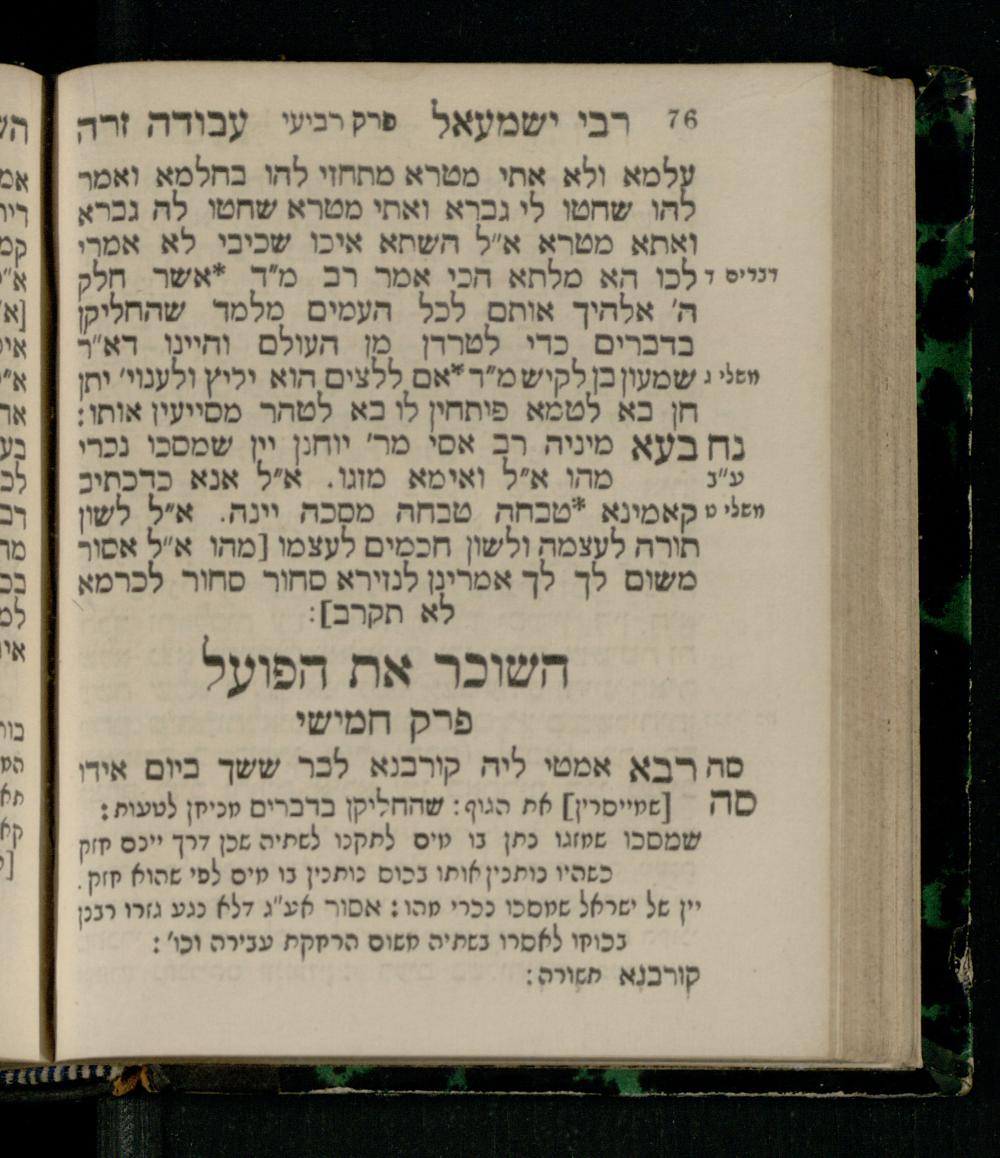 76 רבי ישמעאל פרק רביעי עבודה זרה
עלמא ולא אתי מטרא מתחזי להו בחלמא ואמר
להו שחטו לי גברא ואתי מטרא שחטו לה גברא
ואתא מטרא א״ל השתא איכו שכיבי לא אמרי
דברים ד לכו הא מלתא הכי אמר רב מ״ד *אשר חלק
ה׳ אלהיך אותם לכל העמים מלמד שהחליקן
בדברים כדי לטרדן מן העולם והיינו דא״ר
משלי ג שמעון בן לקיש מ״ד *אם ללצים הוא יליץ ולענוי׳ יתן
חן בא לטמא פותחין לו בא לטהר מסייעין אותו:
נח בעא מיניה רב אסי מר׳ יוחנן יין שמסכו נכרי
ע״ב מהו א״ל ואימא מזגו. א״ל אנא כדכתיב
משלי ט קאמינא *טבחה טבחה מסכה יינה. א״ל לשון
תורה לעצמה ולשון חכמים לעצמו [מהו א״ל אסור
משום לך לך אמרינן לנזירא סחור סחור לכרמא
לא תקרב]:
השוכר את הפועל
פרק חמישי
סה רבא אמטי ליה קורבנא לבר ששך ביום אידו
סה [שמייסרין] את הגוף: שהחליקן בדברים מכיתן לטעות:
שמסכו שמזגו נתן בו מים לתקנו לשתיה שכן דרך יינם חזק
כשהיו נותנין אותו בכוס נותנין בו מים לפי שהוא חזק.
יין של ישראל שמסכו נכרי מהו: אסור אע״ג דלא נגע גזרו רבנן
בכוחו לאסרו בשתיה משום הרחקת עבירה וכו׳:
קורבנא תשורה:
הש
אמ
קמ
א״
[א׳
אי
א״
בע
לכ
מה
בכ
למ
אי